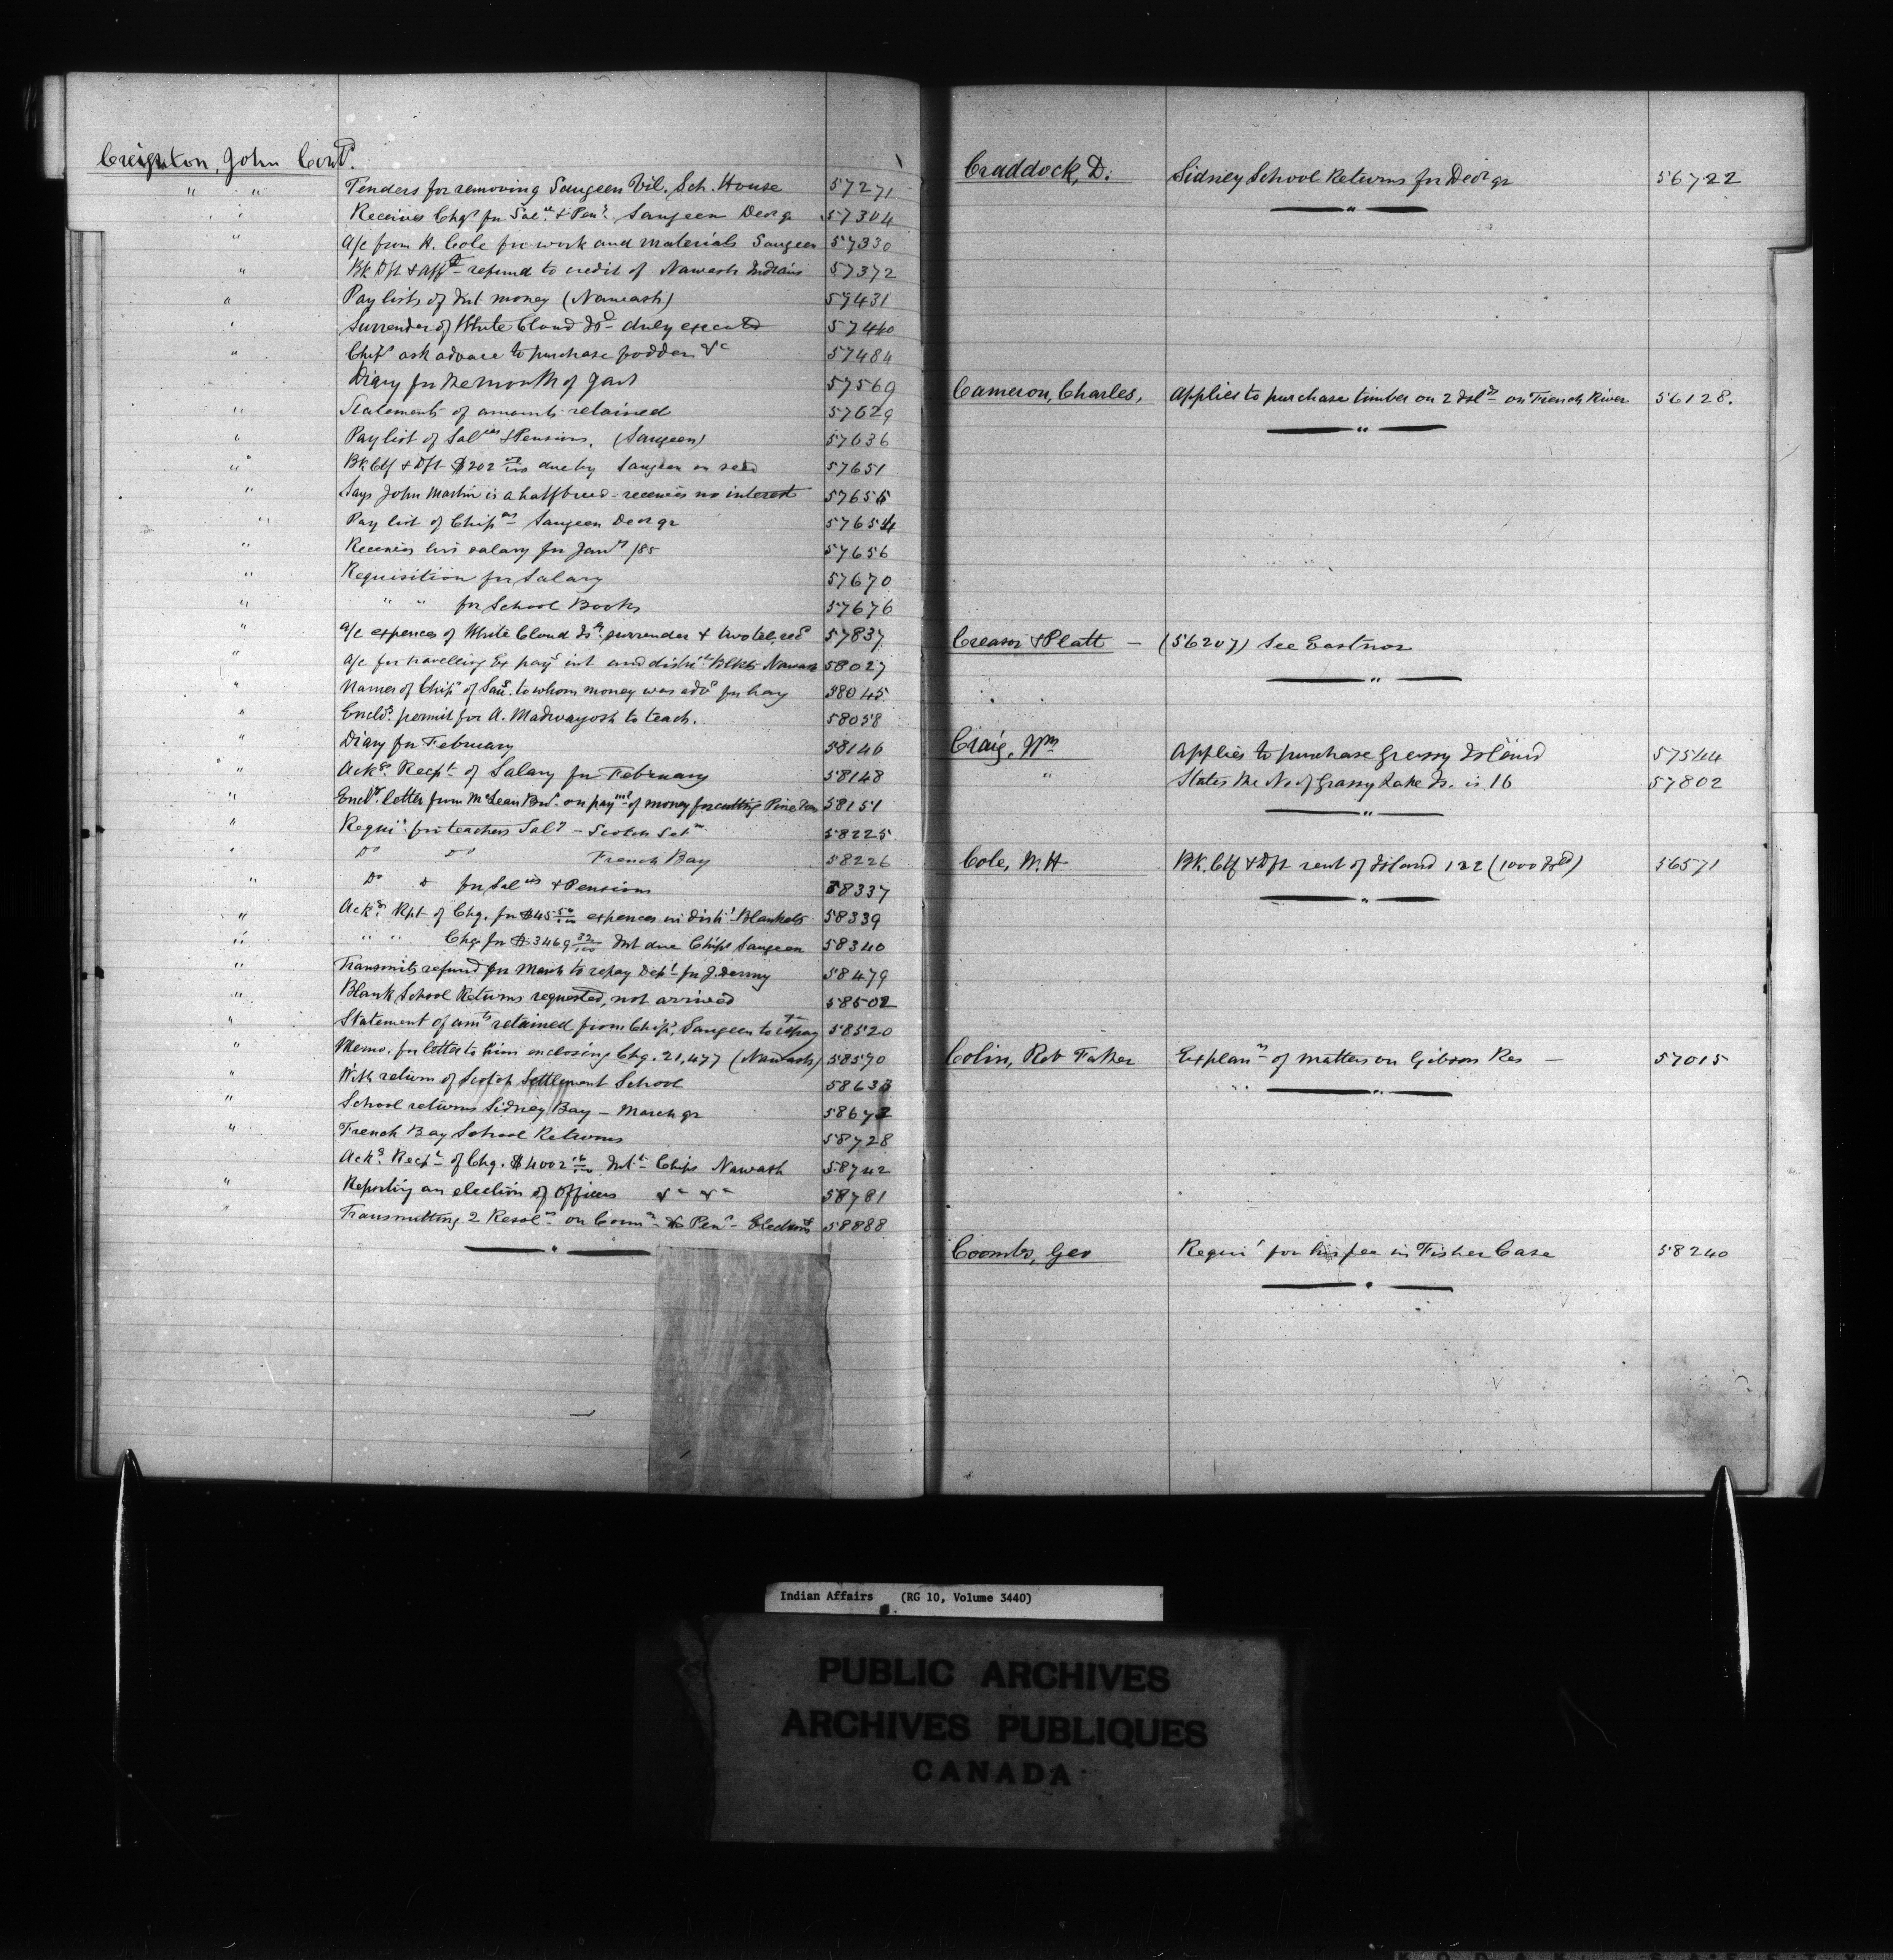 Creighton, John Cont'd.
" " Tenders for removing Saugeen Vil. Sch. House 57271
" Receives Chqs for Sal.es & Pens. Saugeen Decr qr 57304
" a/c from H. Cole for work and materials Saugeen 57330
" Bk Dft & Afft refund to credit of Nawash Indians 57372
" Pay lists of Int. money (Nawash) 57431
" Surrender of White Cloud Isd duly executed 57440
" Chips ask advance to purchase fodder &c 57484
Diary for the month of Jany 57569
" Statements of amounts retained 57629
" Pay list of Salies & Pensions, (Saugeen) 57636
" Bk Ctf & Dft $202 due by Saugeen on seed 57651
" Says John Martin is a halfbreed - receives no interest 57655
" Pay list of Chipas Saugeen Decr qr 57654
" Receives his salary for Jany /85 57656
" Requisition for Salary 57670
" " " for School Books 57676
" a/c expences of White Cloud Isd. surrender & two tel. recd 57837
" a/c for travelling Ex pays int and distri Blkts Nawash 58027
" Names of Chips of Saug. to whom money was advd for hay 58045
" Encls. permit for A. Madwayosh to teach. 58058
" Diary for February 58146
" Acks. Recpt of Salary for February 58148
" Encls. letter from McLean Bros on paymt of money for cutting Pine 58151
" Requin for teachers Saly - Scotch Setm 58225
" Do Do French Bay 58226
" Do Do for Salies & Pensions 58337
" Acks. Rpt of Chq. for $45 50/100 expences in distr Blankets 58339
" " " Chq for $3469 32/100 Int due Chips Saugeen 58340
" Transmits refund for March to repay Dept for J. Denny 58479
" Blank School Returns requested, not arrived 58502
" Statement of amts retained from Chips, Saugeen to repay 58520
" Memo. for letter to him enclosing Chq. 21,477 (Nawash) 58590
" With return of Scotch Settlement School 58633
" School returns Sidney Bay - March qr 58672
" French Bay School Returns 58728
Acks. Recpt of Chq. $4002 16/100 Intt Chips Nawash 58742
" Reporting an election of Officers &c &c 58781
" Transmitting 2 Resolns on 58888
Craddock, D. Sidney School Returns for Decr qr 56722
Cameron, Charles, Applies to purchase timber on 2 Islds on French River 56128.
Creasor & Platt - (56207) See Eastnor
Craig, Wm Applies to purchase Grassy Island 57544
" States the No of Grassy Lake Is. is 16 57802
Cole, W. H Bk. Ctf & Dft rent of Island 122 (1000 Isld) 56571
Colin, Rev Father Explann of matters on Gibson Res - 57015
Coombs, Geo Requin for his fee in Fisher Case 58240
Indian Affairs (RG 10, Volume 3440)
PUBLIC ARCHIVES
ARCHIVES PUBLIQUES
CANADA